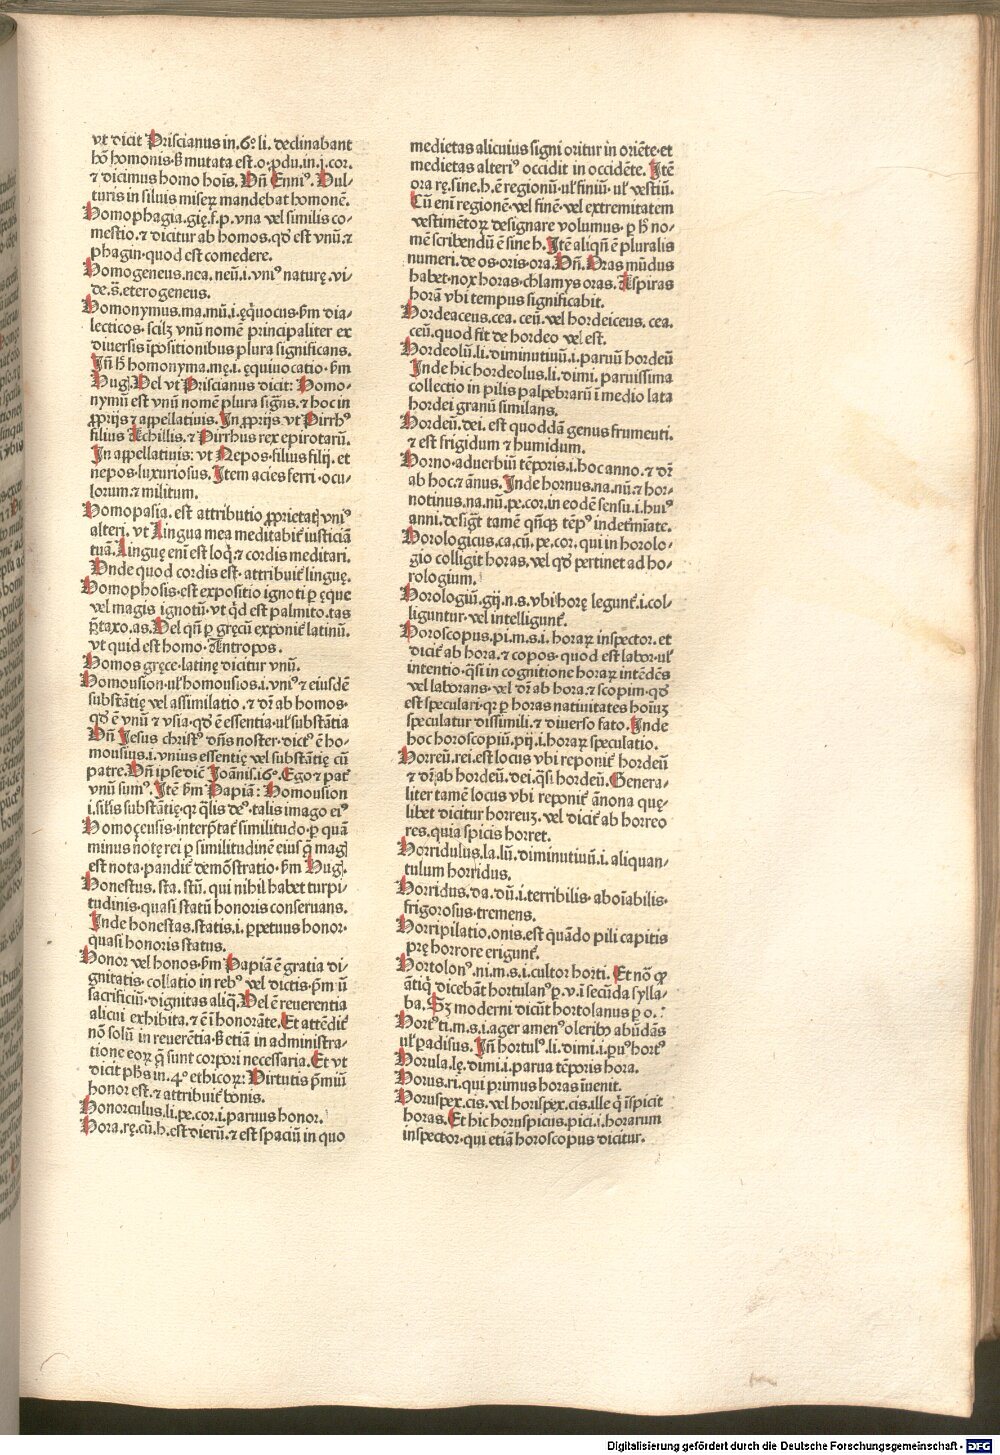 vt dicit Priscianus in .6º li. declinabant
hō homonis. ꝫ mutata est .o. ꝓdu. in .i. cor.
⁊ dicimus homo hoīs. Vn̄ Enniꝰ. Vul-
turis in siluis miseꝝ mandebat homonē.
Homophagia .gię. f. p. vna vel similis co-
mestio. ⁊ dicitur ab homos. qḋ est vnū. ⁊
phagin. quod est comedere.
Homogeneus .nea. neū. i. vniꝰ naturę. vi-
de. s̄. eterogeneus.
Homonymus .ma. mū. i. ęq̇uocus. ẜm dia-
lecticos. scilꝫ vnū nomē principaliter ex
diuersis īpositionibus plura significans.
Jn̄ h̄ homonyma .mę. i. ęquiuocatio. ẜm
Hug. Vel vt Priscianus dicit: Homo-
nymū est vnū nomē plura sign̄s. ⁊ hoc in
ꝓprijs ⁊ appellatiuis. Jn ꝓprijs. vt Pirrhꝰ
filius Achillis. ⁊ Pirrhus rex epirotarū.
Jn appellatiuis: vt Nepos. filius filij. et
nepos. luxuriosus. Jtem acies ferri. ocu-
lorum. ⁊ militum.
Homopasia. est attributio ꝓprietatꝭ vniꝰ
alteri. vt Lingua mea meditabit᷑ iusticiā
tuā. Linguę eni̅ est loq̇. ⁊ cordis meditari.
Vnde quod cordis est. attribuit᷑ linguę.
Homophosis. est expositio ignoti ꝑ ęque
vel magis ignotū. vt q̇d est palmito .tas
p̄taxo .as. Vel qn̄ ꝑ gręcū exponit᷑ latinū.
vt quid est homo. Antropos.
Homos gręce. latine dicitur vnū.
Homousion. ul̓ homousios. i. vniꝰ ⁊ eiusdē
substātię vel assimilatio. ⁊ dr̄ ab homos.
qḋ ē vnū ⁊ vsia. qḋ ē essentia. ul̓ substātia
Vn̄ Jesus christꝰ dn̄s noster. dictꝰ ē ho-
mousius. i. vnius essentię vel substātię cū
patre. Vn̄ ipse dic̄ Joānis .16º. Ego ⁊ pat᷑
vnū sumꝰ. Jtē ẜm Papiā: Homousion
i. sil̓is substātię. q̨ q̄lis deꝰ. talis imago eiꝰ
Homoçensis. interp̄tat᷑ similitudo. ꝑ quā
minus notę rei ꝑ similitudinē eius q̄ magꝭ
est nota. pandit᷑ demōstratio. ẜm Hug.
Honestus. sta. stū. qui nihil habet turpi-
tudinis. quasi statū honoris conseruans.
Jnde honestas .statis. i. ꝑpetuus honor.
quasi honoris status.
Honor vel honos. ẜm Papiā ē gratia di-
gnitatis. collatio in rebꝰ vel dictis. ꝓm ū
sacrificiū. dignitas aliq̄. Vel ē reuerentia
alicui exhibita. ⁊ ē ī honorāte. Et attēdit᷑
nō solū in reuerētia. ꝫ etiā in administra-
tione eoꝝ q̄ sunt corpori necessaria. Et vt
dicit ph̄s in .4º ethicoꝝ: Virtutis p̄miū
honor est. ⁊ attribuit᷑ bonis.
Honorculus .li. pe. cor. i. paruus honor.
Hora .rę. cū .h. est dierū. ⁊ est spaciū in quo
medietas alicuius signi oritur in oriēte. et
medietas alteriꝰ occidit in occidēte. Jtē
ora rę. sine .h. ē regionū. ul̓ finiū. ul̓ vestiū.
Cū eni̅ regionē. vel finē. vel extremitatem
vestimētoꝝ designare volumus. ꝑ h̄ no-
mē scribendū ē sine h. Jtē aliqn̄ ē pluralis
numeri. de os. oris. ora. Vn̄. Oras mūdus
habet. nox horas. chlamys oras. Aspiras
horā vbi tempus significabit.
Hordeaceus .cea. ceū. vel hordeiceus .cea.
ceū. quod fit de hordeo vel est.
Hordeolū .li. diminutiuū. i. paruū hordeū
Jnde hic hordeolus .li. dimi. paruissima
collectio in pilis palpebrarū i medio lata
hordei granū similans.
Hordeū .dei. est quoddā genus frumenti.
⁊ est frigidum ⁊ humidum.
Horno. aduerbiū tēporis. i. hoc anno. ⁊ dr̄
ab hoc. ⁊ annus. Jnde hornus .na. nū. ⁊ hor-
notinus .na. nū. pe. cor. in eodē sensu. i. huiꝰ
anni. desigt᷑ tamē qn̄qꝫ tēpꝰ indet̓miate.
Horologicus .ca. cū. pe. cor. qui in horolo-
gio colligit horas. vel qḋ pertinet ad ho-
rologium.
Horologiū .gij. n. s. vbi horę legunt᷑. i. col-
liguntur. vel intelligunt᷑.
Horoscopus .pi. m. s. i. horaꝝ inspector. et
dicit᷑ ab hora. ⁊ copos. quod est labor. ul̓
intentio. q̄si in cognitione horaꝝ intēdēs
vel laborans. vel dr̄ ab hora. ⁊ scopim. qḋ
est speculari. qꝛ ꝑ horas natiuitates hoīuꝫ
speculatur dissimili. ⁊ diuerso fato. Jnde
hoc horoscopiū .pij. i. horaꝝ speculatio.
Horreū .rei. est locus vbi reponit᷑ hordeū
⁊ dr̄ ab hordeū .dei. q̄si hordeū. Genera-
liter tamē locus vbi reponit᷑ ānona quę-
libet dicitur horreuꝫ. vel dicit᷑ ab horreo
res. quia spicis horret.
Horridulus .la. lū. diminutiuū. i. aliquan-
tulum horridus.
Horridus .da. dū. i. terribilis. aboiabilis.
frigorosus. tremens.
Horripilatio .onis. est quādo pili capitis
prę horrore erigunt᷑.
Hortolonꝰ .ni. m. s. i. cultor horti. Et nō ꝙ
ātiq̇ dicebāt hortulanꝰ ꝑ .v. i secūda sylla-
ba. Sꝫ moderni dicūt hortolanus ꝑ o.
Hortꝰ ti. m. s. i. ager amenꝰ oleribꝰ abūdās
ul̓ padisus. Jn̄ hortulꝰ .li. dimi. i. ꝑuꝰ hortꝰ
Horula .lę. dimi. i. parua tēporis hora.
Horus .ri. qui primus horas īuenit.
Horuspex .cis. vel horispex .cis. ille q̇ īspicit
horas. Et hic horuspicus .pici. i. horarum
inspector. qui etiā horoscopus dicitur.
Digitalisierung gefördert durch die Deutsche Forschungsgemeinschaft - DFG